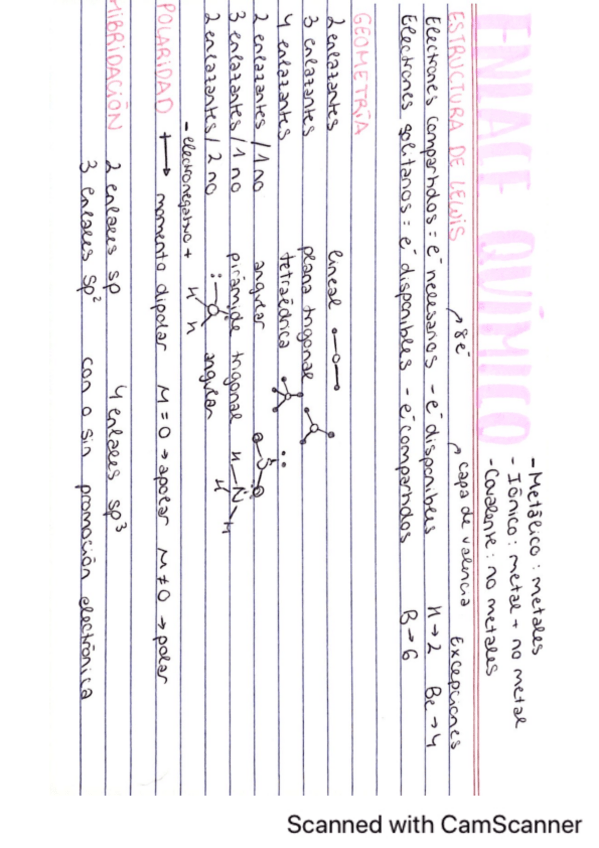 ENLACE QUÍMICO
- Metálico : metales
- Iónico : metal + no metal
- Covalente : no metales
ESTRUCTURA DE LEWIS
8é
capa de valencia
Excepciones
Electrones compartidos = é necesarios - é disponibles
H → 2 Be → 4
Electrones solitarios = é disponibles - é compartidos
B → 6
GEOMETRÍA
2 enlazantes lineal
3 enlazantes plana trigonal
4 enlazantes tetraédrica
2 enlazantes / 1 no angular
3 enlazantes / 1 no pirámide trigonal H N H H
2 enlazantes / 2 no angular
H H
- electronegativo +
POLARIDAD momento dipolar M = 0 → apolar M ≠ 0 → polar
HIBRIDACIÓN 2 enlaces sp 4 enlaces sp³
3 enlaces sp² con o sin promoción electrónica
Scanned with CamScanner